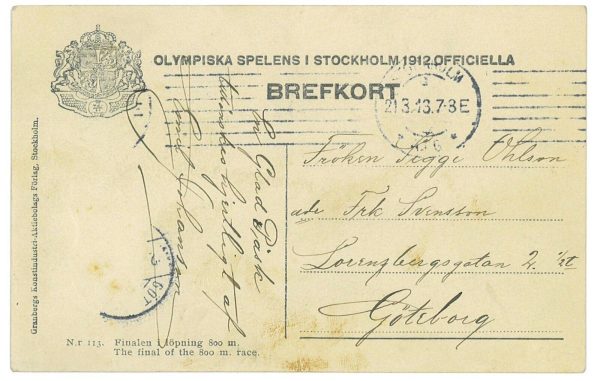 OLYMPISKA SPELENS I STOCKHOLM 1912 OFFICIELLA
BREFKORT
STOCKHOLM
21.3.13.7-8E
En Glad Påsk
tillönskas hjertligt af
Johansson
Fröken Sigge Ohlson
adr Frk Svensson
Lorensbergsgatan 2. 1/2 tr
Göteborg
GÖT
Granbergs Konstindustri-Aktiebolags Förlag, Stockholm.
N.r 113. Finalen i löpning 800 m.
The final of the 800 m. race.